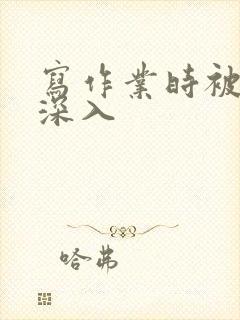 寫作業時被
深入
哈弗